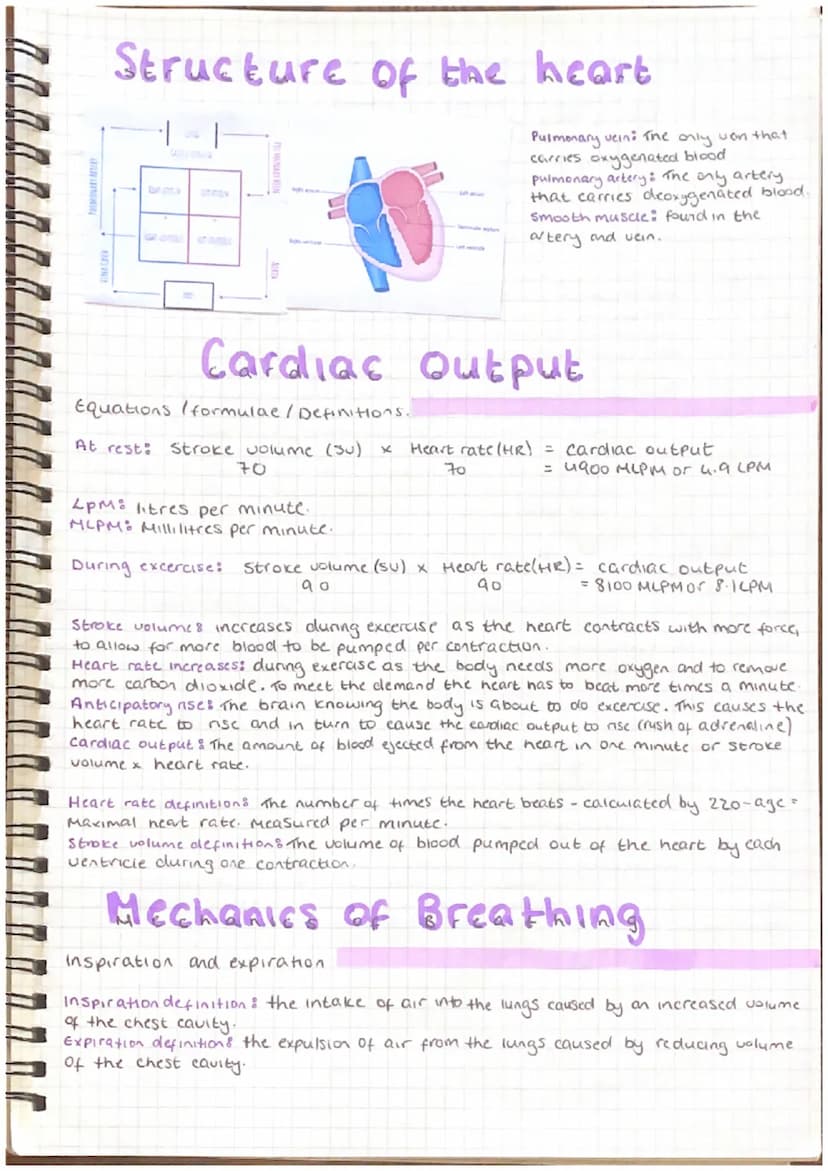 Structure of the heart
PULMONARY ARTERY
PULMONARY VEIN
VENA CAVA
AORTA
Left atrium
Left ventricle
Pulmonary vein: The only ven that
carries oxygenated blood
pulmonary artery: The only artery
that carries deoxygenated blood.
smooth muscle: found in the
artery and vein.
Cardiac Output
Equations / formulae / Definitions.
At rest: Stroke volume (SV) x Heart rate (HR) = cardiac output
70 70 = 4900 MLPM or 4.9 LPM
LPM: litres per minute.
MLPM: Millilitres per minute.
During excercise: Stroke volume (SV) x Heart rate (HR) = cardiac output
90 90 = 8100 MLPM or 8.1 LPM
Stroke volume: increases during excercise as the heart contracts with more force,
to allow for more blood to be pumped per contraction.
Heart rate increases: during exercise as the body needs more oxygen and to remove
more carbon dioxide. To meet the demand the heart has to beat more times a minute.
Anticipatory rise: The brain knowing the body is about to do excercise. This causes the
heart rate to rise and in turn to cause the cardiac output to rise (rush of adrenaline)
Cardiac output: The amount of blood ejected from the heart in one minute or stroke
volume x heart rate.
Heart rate definition: The number of times the heart beats - calculated by 220-age =
Maximal heart rate. Measured per minute.
Stroke volume definition: The volume of blood pumped out of the heart by each
ventricle during one contraction.
Mechanics of Breathing
Inspiration and expiration
Inspiration definition: the intake of air into the lungs caused by an increased volume
of the chest cavity.
Expiration definition: the expulsion of air from the lungs caused by reducing volume
of the chest cavity.